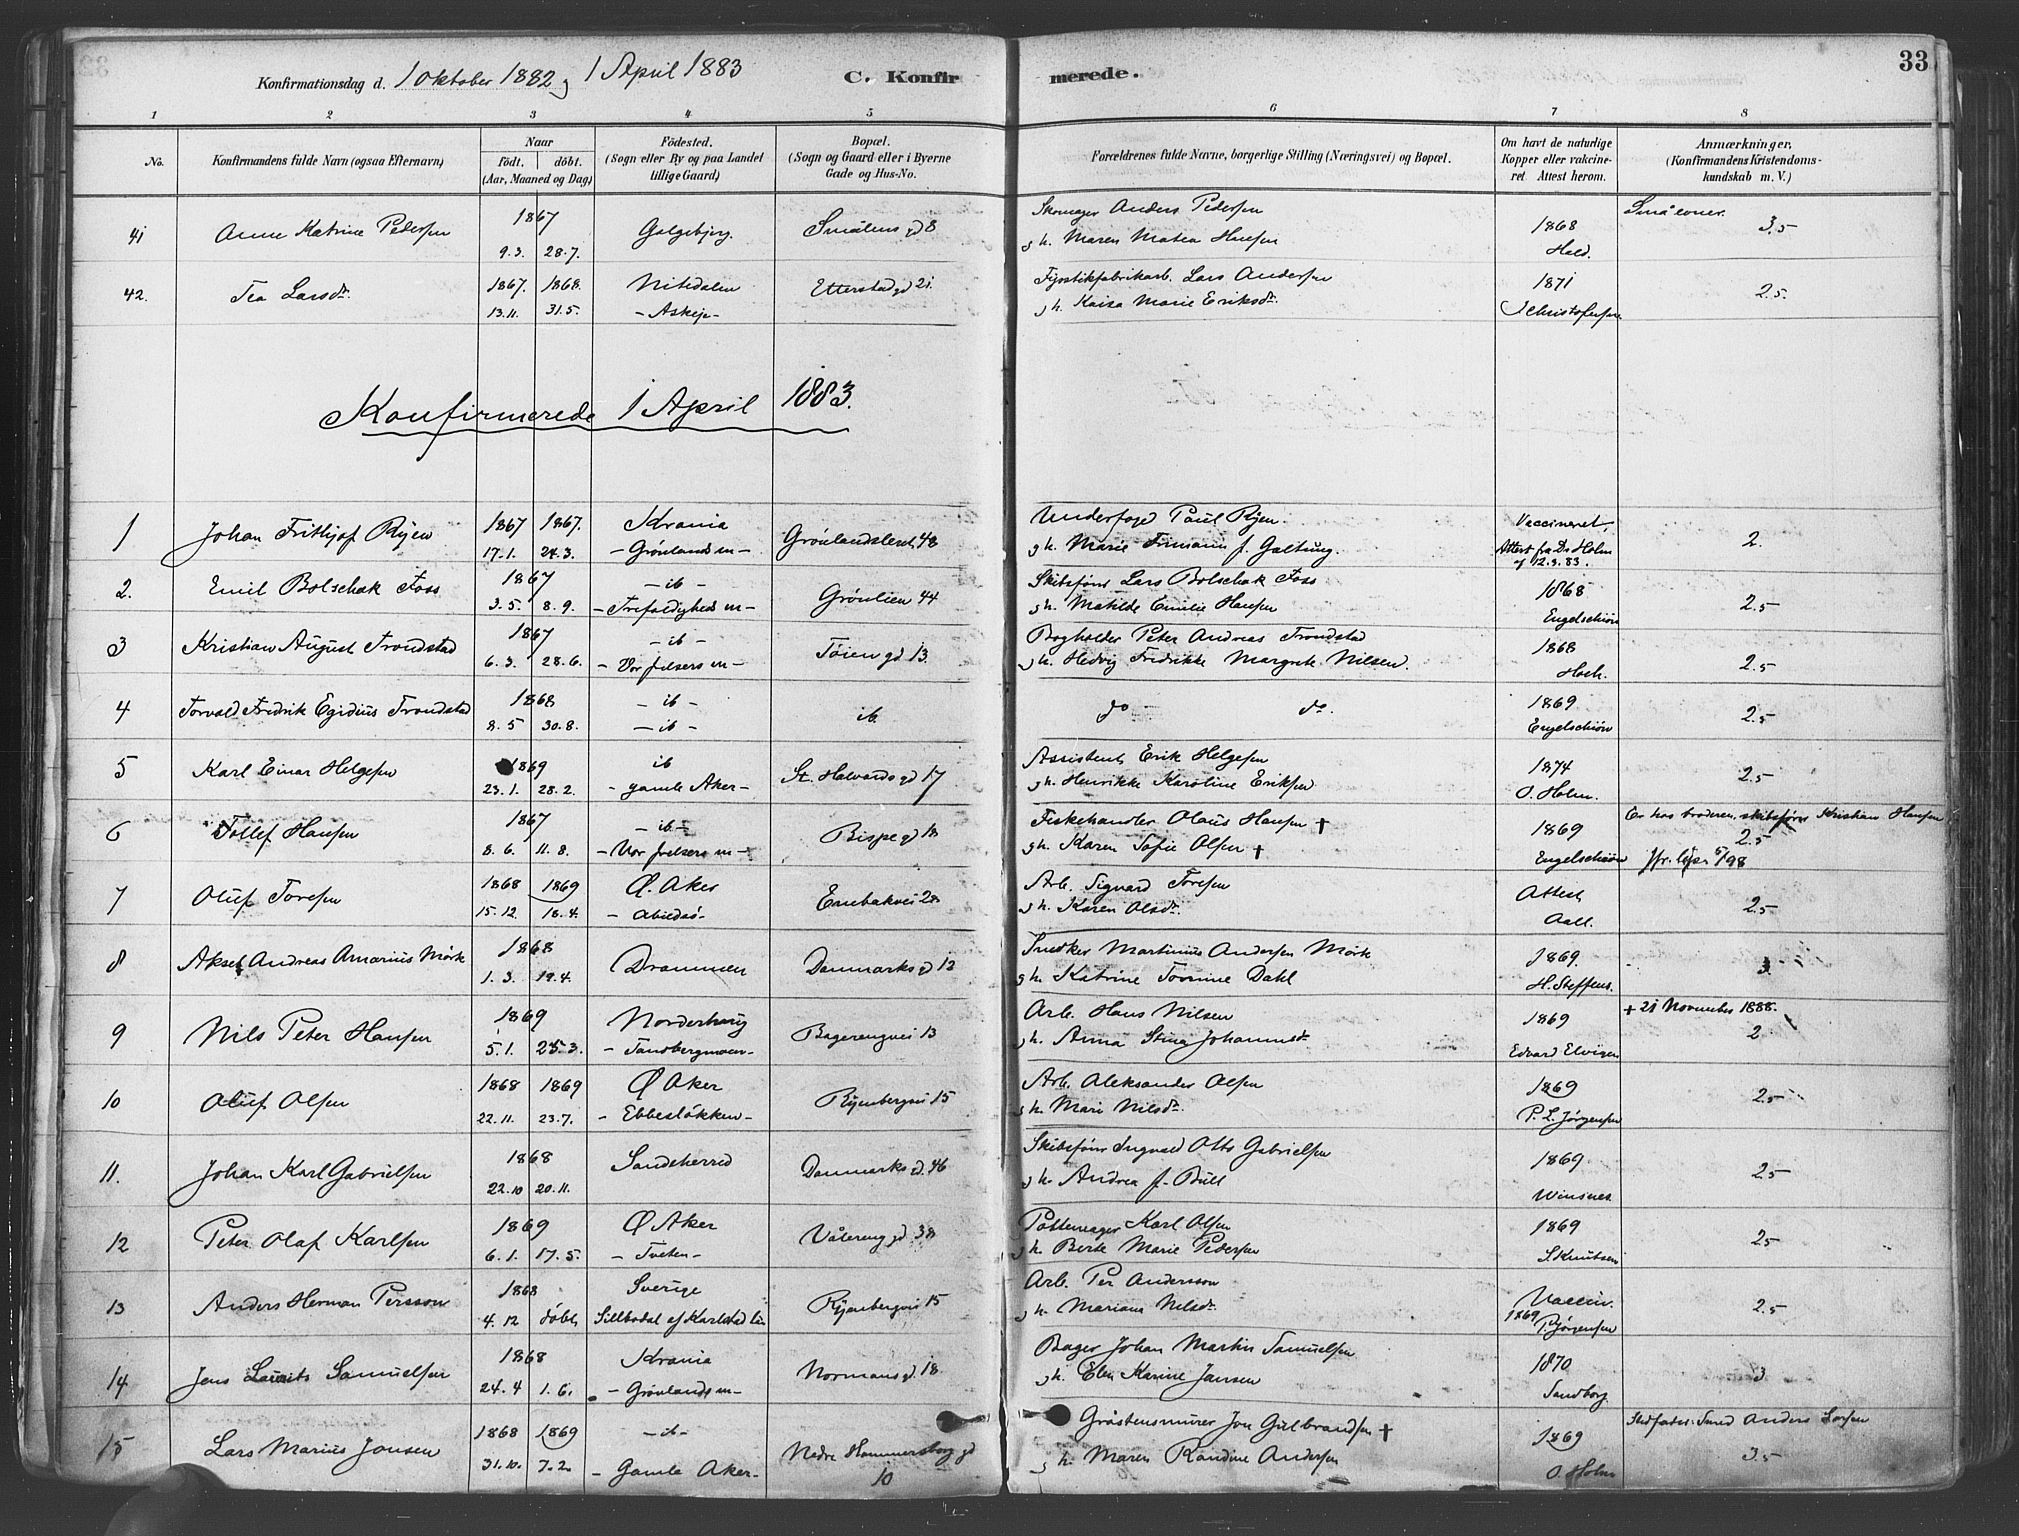 Konfirmationsdag d. 1 Oktober 1882 og 1 April 1883 C. Konfirmerede. 33
1 2 3 4 5 6 7 8
No. Konfirmandens fulde Navn (ogsaa Efternavn) Naar Födt. döbt. (Aar, Maaned og Dag) Födested. (Sogn eller By og paa Landet tillige Gaard) Bopæl. (Sogn og Gaard eller i Byerne Gade og Hus-No. Forældrenes fulde Navne, borgerlige Stilling (Næringsvei) og Bopæl. Om havt de naturlige Kopper eller vakcineret Attest herom. Anmærkninger. (Konfirmandens Kristendomskundskab m. V.)
41 Anne Katrine Pedersen 1867 Galgebjerg Smålens gd 8 Skomager Anders Pedersen 1868 3.5
9.3. 28.7. g h. Maren Matea Hansen Hald.
42. Tea Larsdr. 1867. 1868. Nitedalen Etterstad gd 21. Fyrstikfabrikarb. Lars Andersen 1871 2.5.
13.11. 31.5. - Askeje - g h. Kaisa Marie Eriksdr. J Christofersen
Konfirmerede 1 April 1883.
1 Johan Frithjof Ryen 1867 1867. Krania Grönlandsleret 48 Underfoged Paul Ryen. Vaccineret, 2.
17.1. 24.3. - Grönlands m - g h. Marie Firmann f. Galtung. Attest fra Dr Holm af 12.3.83.
2. Emil Bolschak Foss 1867 - ib - Grönlien 44 Skibsförer Lars Bolschak Foss 1868 2.5
3.5. 8.9. - Trefoldigheds m - g h. Matilde Emilie Hansen Engelschiön
3 Kristian August Trondstad 1867 - ib - Töien gd 13. Bogholder Peter Andreas Trondstad 1868 2.5
6.3. 28.6. - Vor frelsers m - g h. Hedvig Fredrikke Margrete Nilsen. Hoch.
4 Torvald Fredrik Egidius Trondstad 1868 - ib - ib. do do. 1869 2.5
8.5 30.8. - ib - Engelschiön
5 Karl Einar Helgesen 1869 ib St. Halvards gd 17 Assistent Erik Helgesen 1874 2.5
23.1. 28.2. - gamle Aker - g h. Henrikke Karoline Eriksen O. Holm.
6 Tollef Hansen 1867 - ib - Bispe gd 18 Fiskehandler Olaus Hansen † 1869 Er hos broderen, skibsförer Kristian Hansen 2.5
8.6. 11.8. - Vor frelsers m - g h. Karen Sofie Olsen † Engelschiön 5/98
7 Oluf Toresen 1868 1869 Ø. Aker Enebakvei 28 Arb. Sigvard Toresen Attest 2.5
15.12. 18.4. - Abildsö - g h. Karen Olsdr. Aall.
8 Aksel Andreas Amarius Mörk 1868 Drammen Danmarks gd 12 Snedker Martinius Andersen Mörk 1869. 3.
1.3. 19.4. g h. Katrine Tovrine Dahl H. Steffens.
9 Nils Peter Hansen 1869 Norderhoug Bagerengvei 13 Arb. Hans Nilsen 1869 + 21 November 1888. 2
5.1. 25.3. - Tandbergmoen - g h. Anna Stina Johannesdr. Edvard Elvigen
10 Oluf Olsen 1868 1869 Ø Aker Ryenbergvei 15 Arb. Aleksander Olsen 1869 2.5
22.11. 23.7. - Ebbeslökken - g h. Mari Nilsdr. P. L. Jørgensen
11. Johan Karl Gabrielsen 1868 Sandeherred Danmarks gd. 46 Skibsförer Ingvald Otto Gabrielsen 1869 2.5
22.10 20.11. g h. Andrea f. Bull Winsnes
12 Peter Olaf Karlsen 1869 Ø Aker Vålereng gd. 38 Pottemager Karl Olsen 1869 2.5
6.1. 17.5. - Tveten - g h. Berte Marie Pedersen S. Knutsen
13 Anders Herman Persson 1868 Sverige Ryenbergvei 15 Arb. Per Andersson Vaccin. 2.5
4.12 döbt, Sillbodal af Karlstad län g h. Mariana Nilsdr. 1869 P. Jørgensen
14 Jens Laurits Samuelsen 1868 Krania Normans gd. 18. Bager Johan Martin Samuelsen 1870 3
24.4 1.6. - Grönlands m - g h. Elen Karine Jansen Sandborg.
15 Lars Marius Jonsen 1868 1869 - ib - Nedre Hammersborg gd 10 Gråstensmurer Jon Gulbrandsen † 1869 Stedfader: Smed Anders Larsen 3.5
31.10. 7.2. - Gamle Aker - g h. Maren Randine Andersen O. Holm